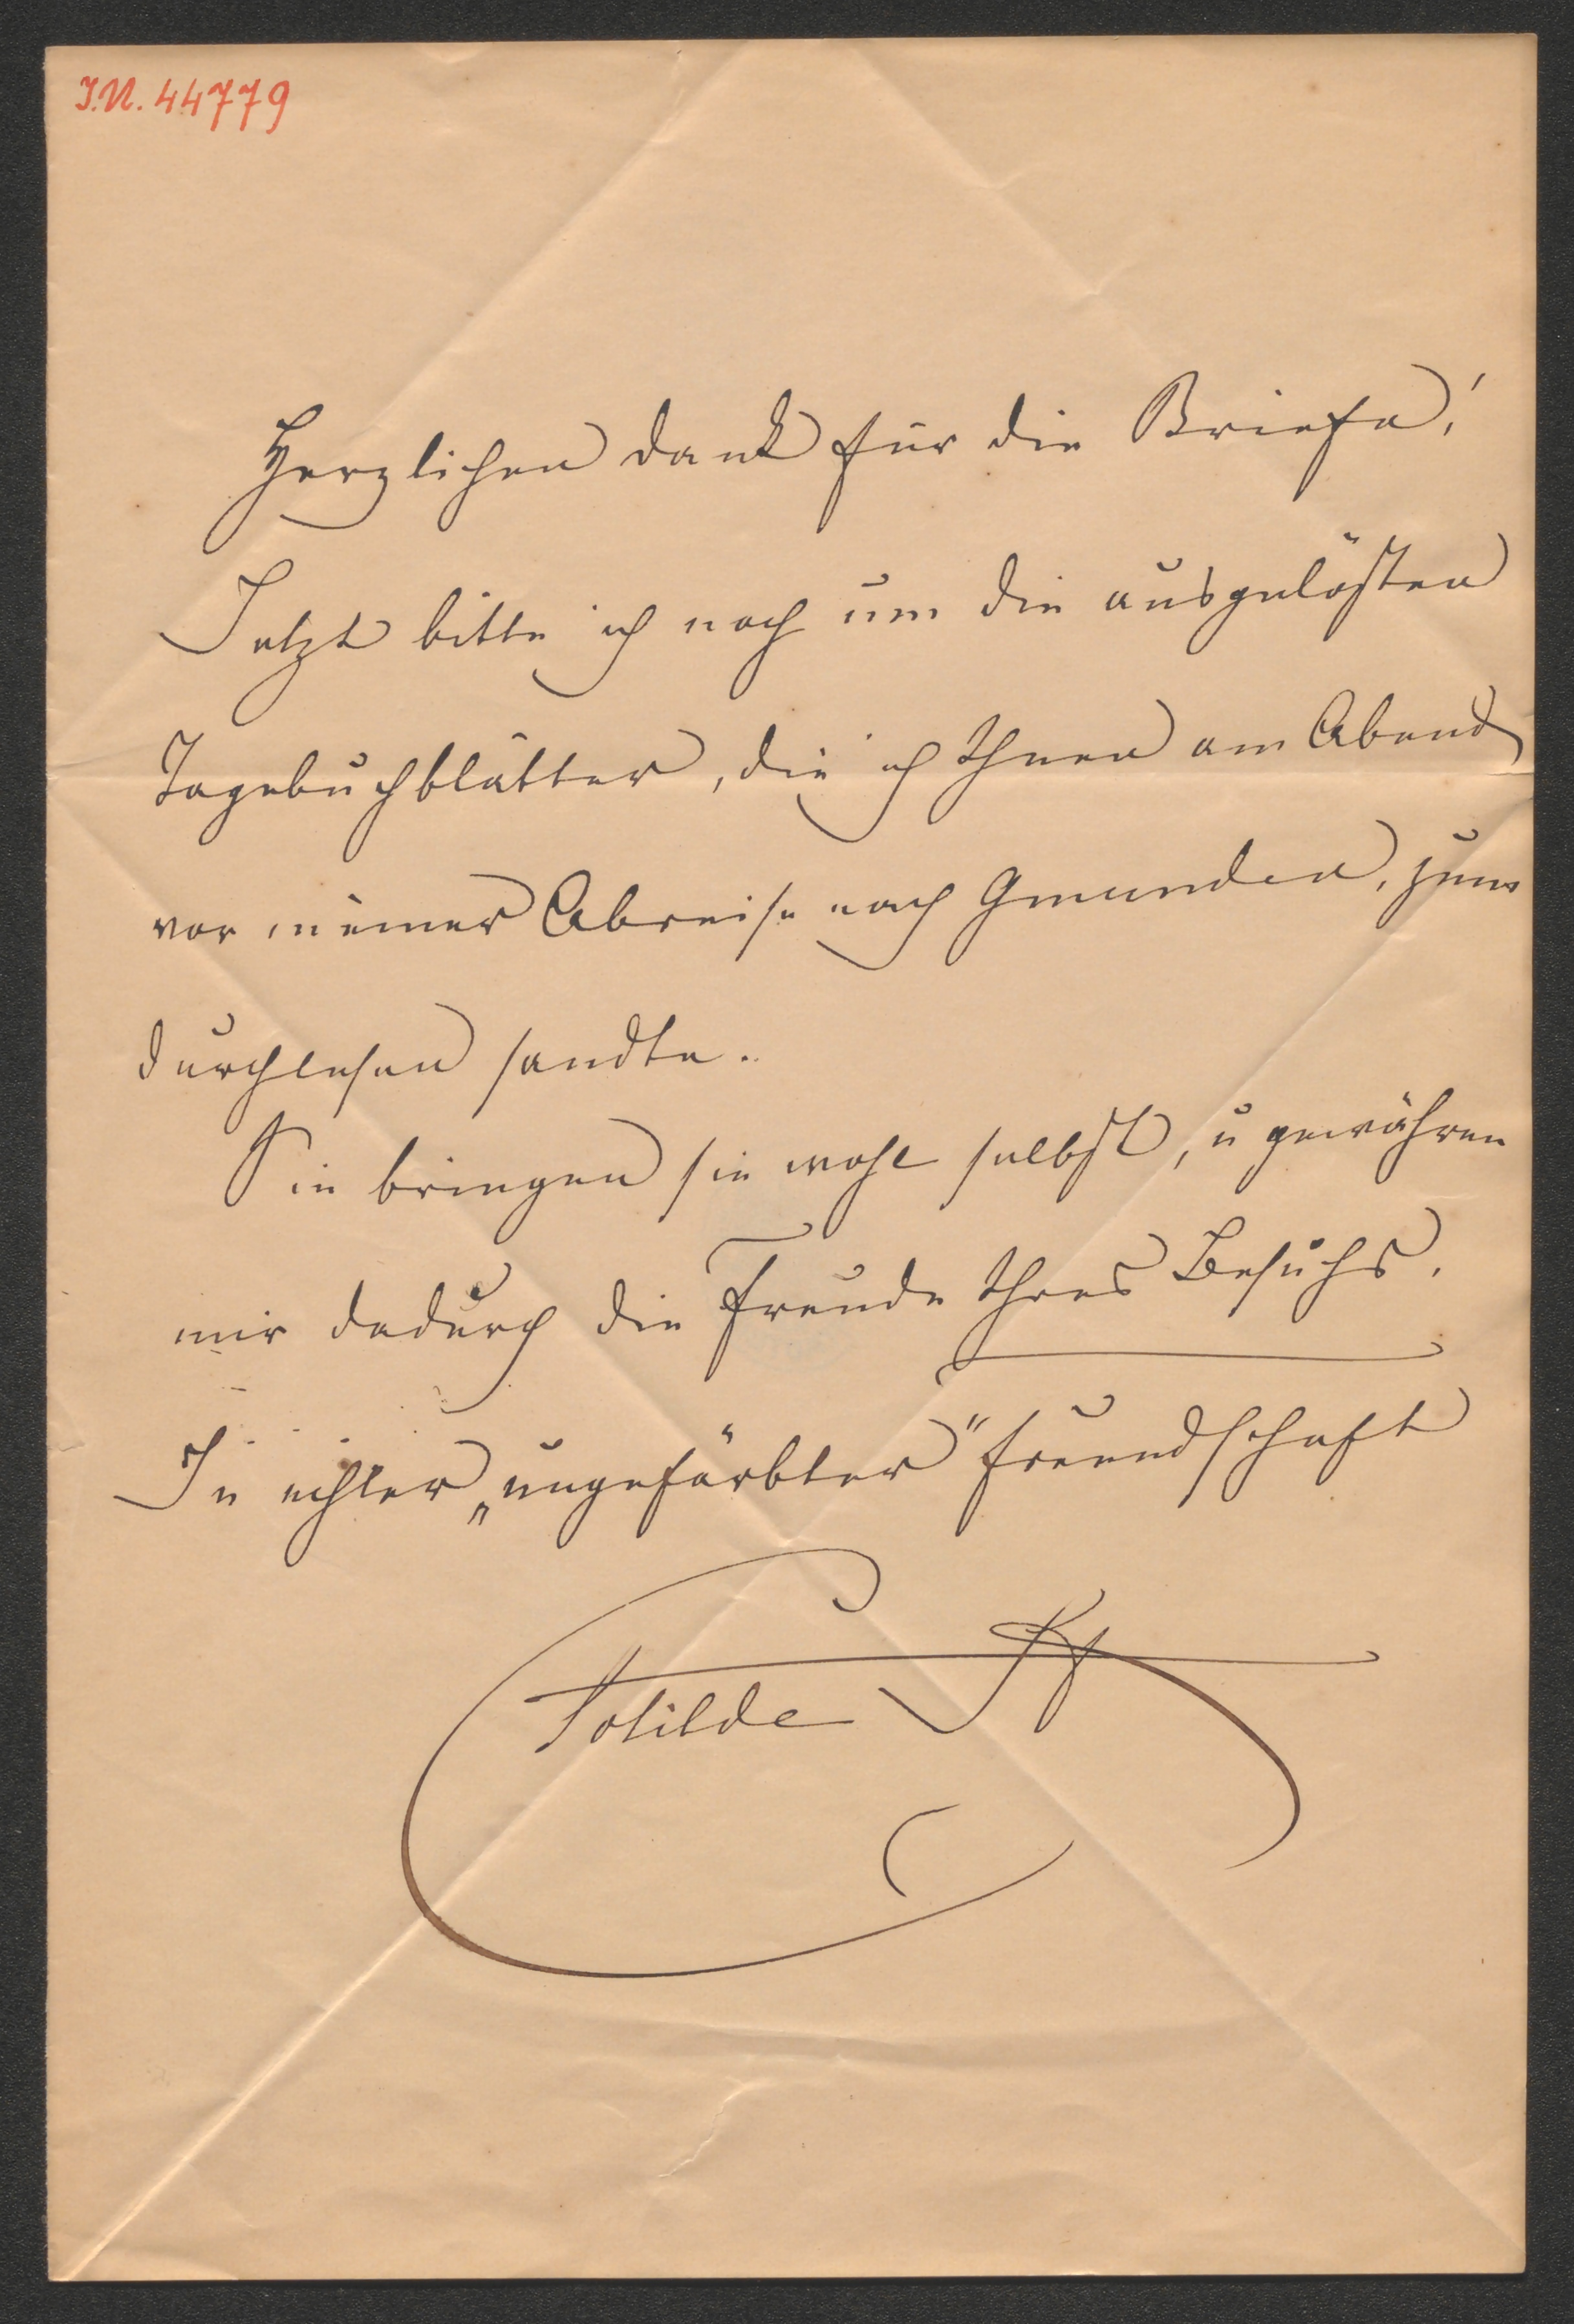 I.N. 44779
Herzlichen Dank für die Briefe!
Jetzt bitte ich noch um die ausgelösten
Tagebuchblätter, die ich Ihnen am Abend
vor meiner Abreise nach Gmunden, zum
durchlesen sandte.
Sie bringen sie wohl selbst, u gewähren
mir dadurch die Freude Ihres Besuchs.
In echter „ungefärbter" Freundschaft